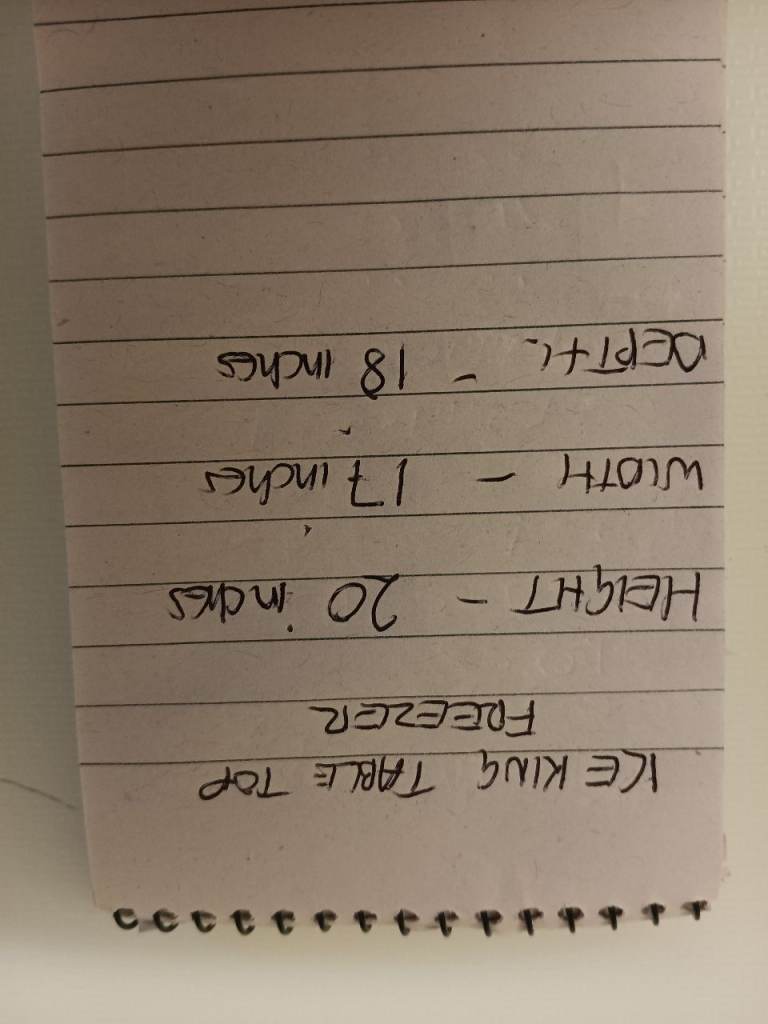 ICE KING TABLE TOP
FREEZER
HEIGHT - 20 inches
WIDTH - 17 inches
DEPTH - 18 inches